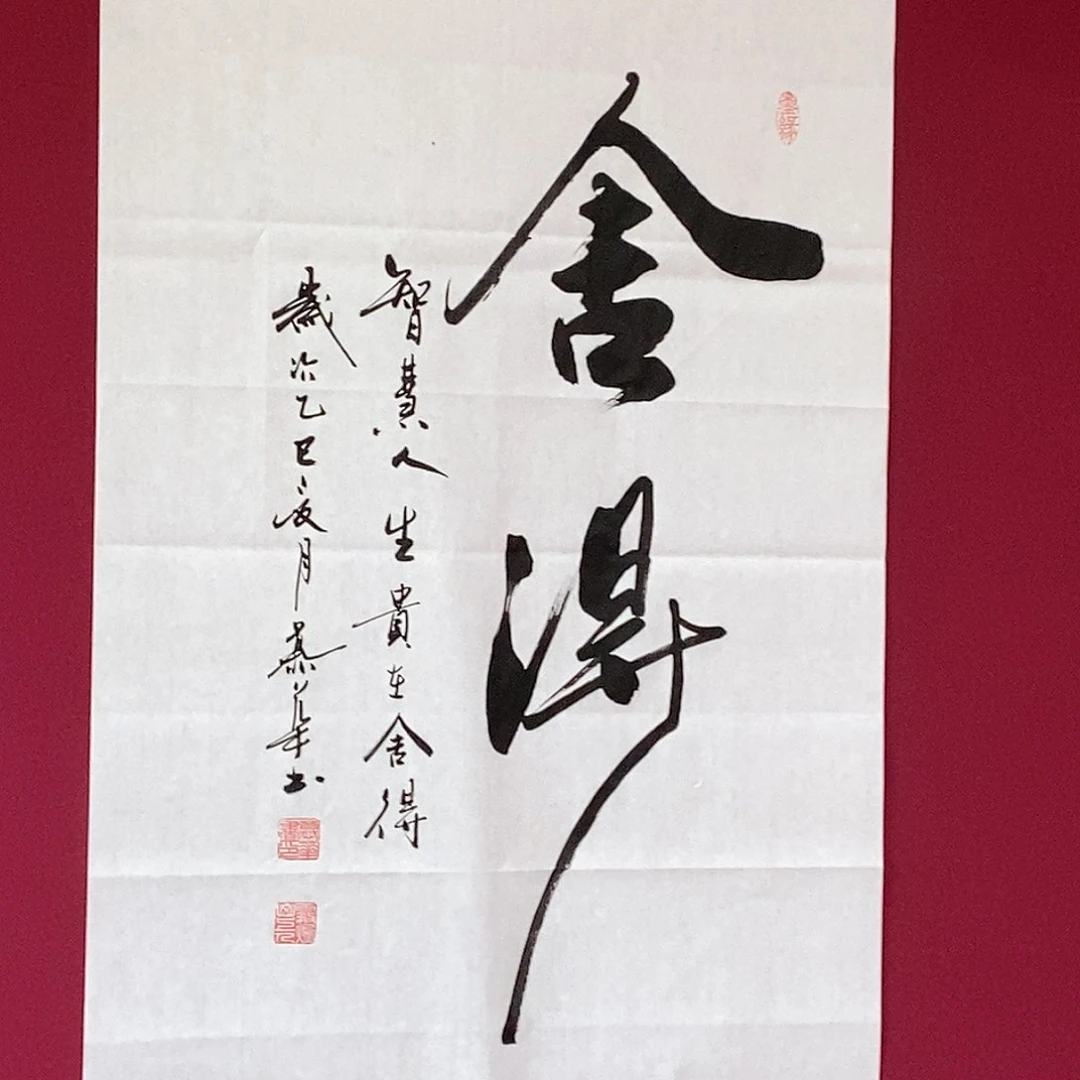 舍得
智慧人生貴在舍得
歲次乙巳夏月慕華书